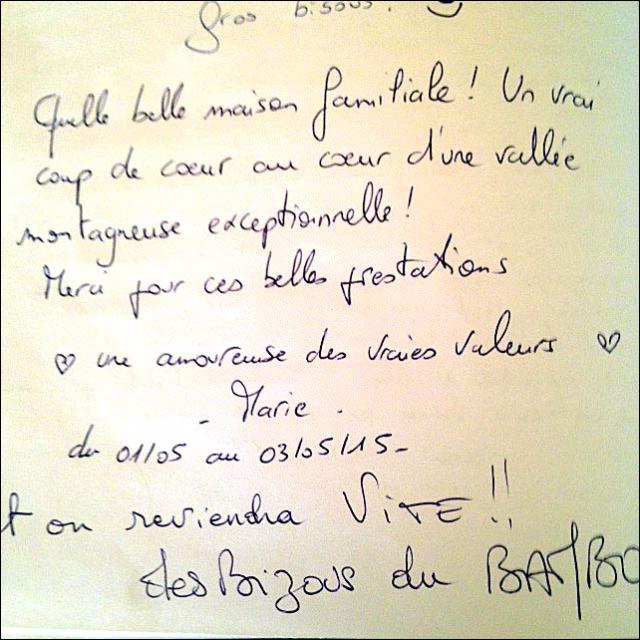 Gros bisous.
Quelle belle maison familiale ! Un vrai
coup de coeur au coeur d'une vallée
montagneuse exceptionnelle !
Merci pour ces belles prestations
♡ une amoureuse des vraies valeurs ♡
- Marie -
du 01/05 au 03/05/15-
t on reviendra ViTE !!
des Bizous du